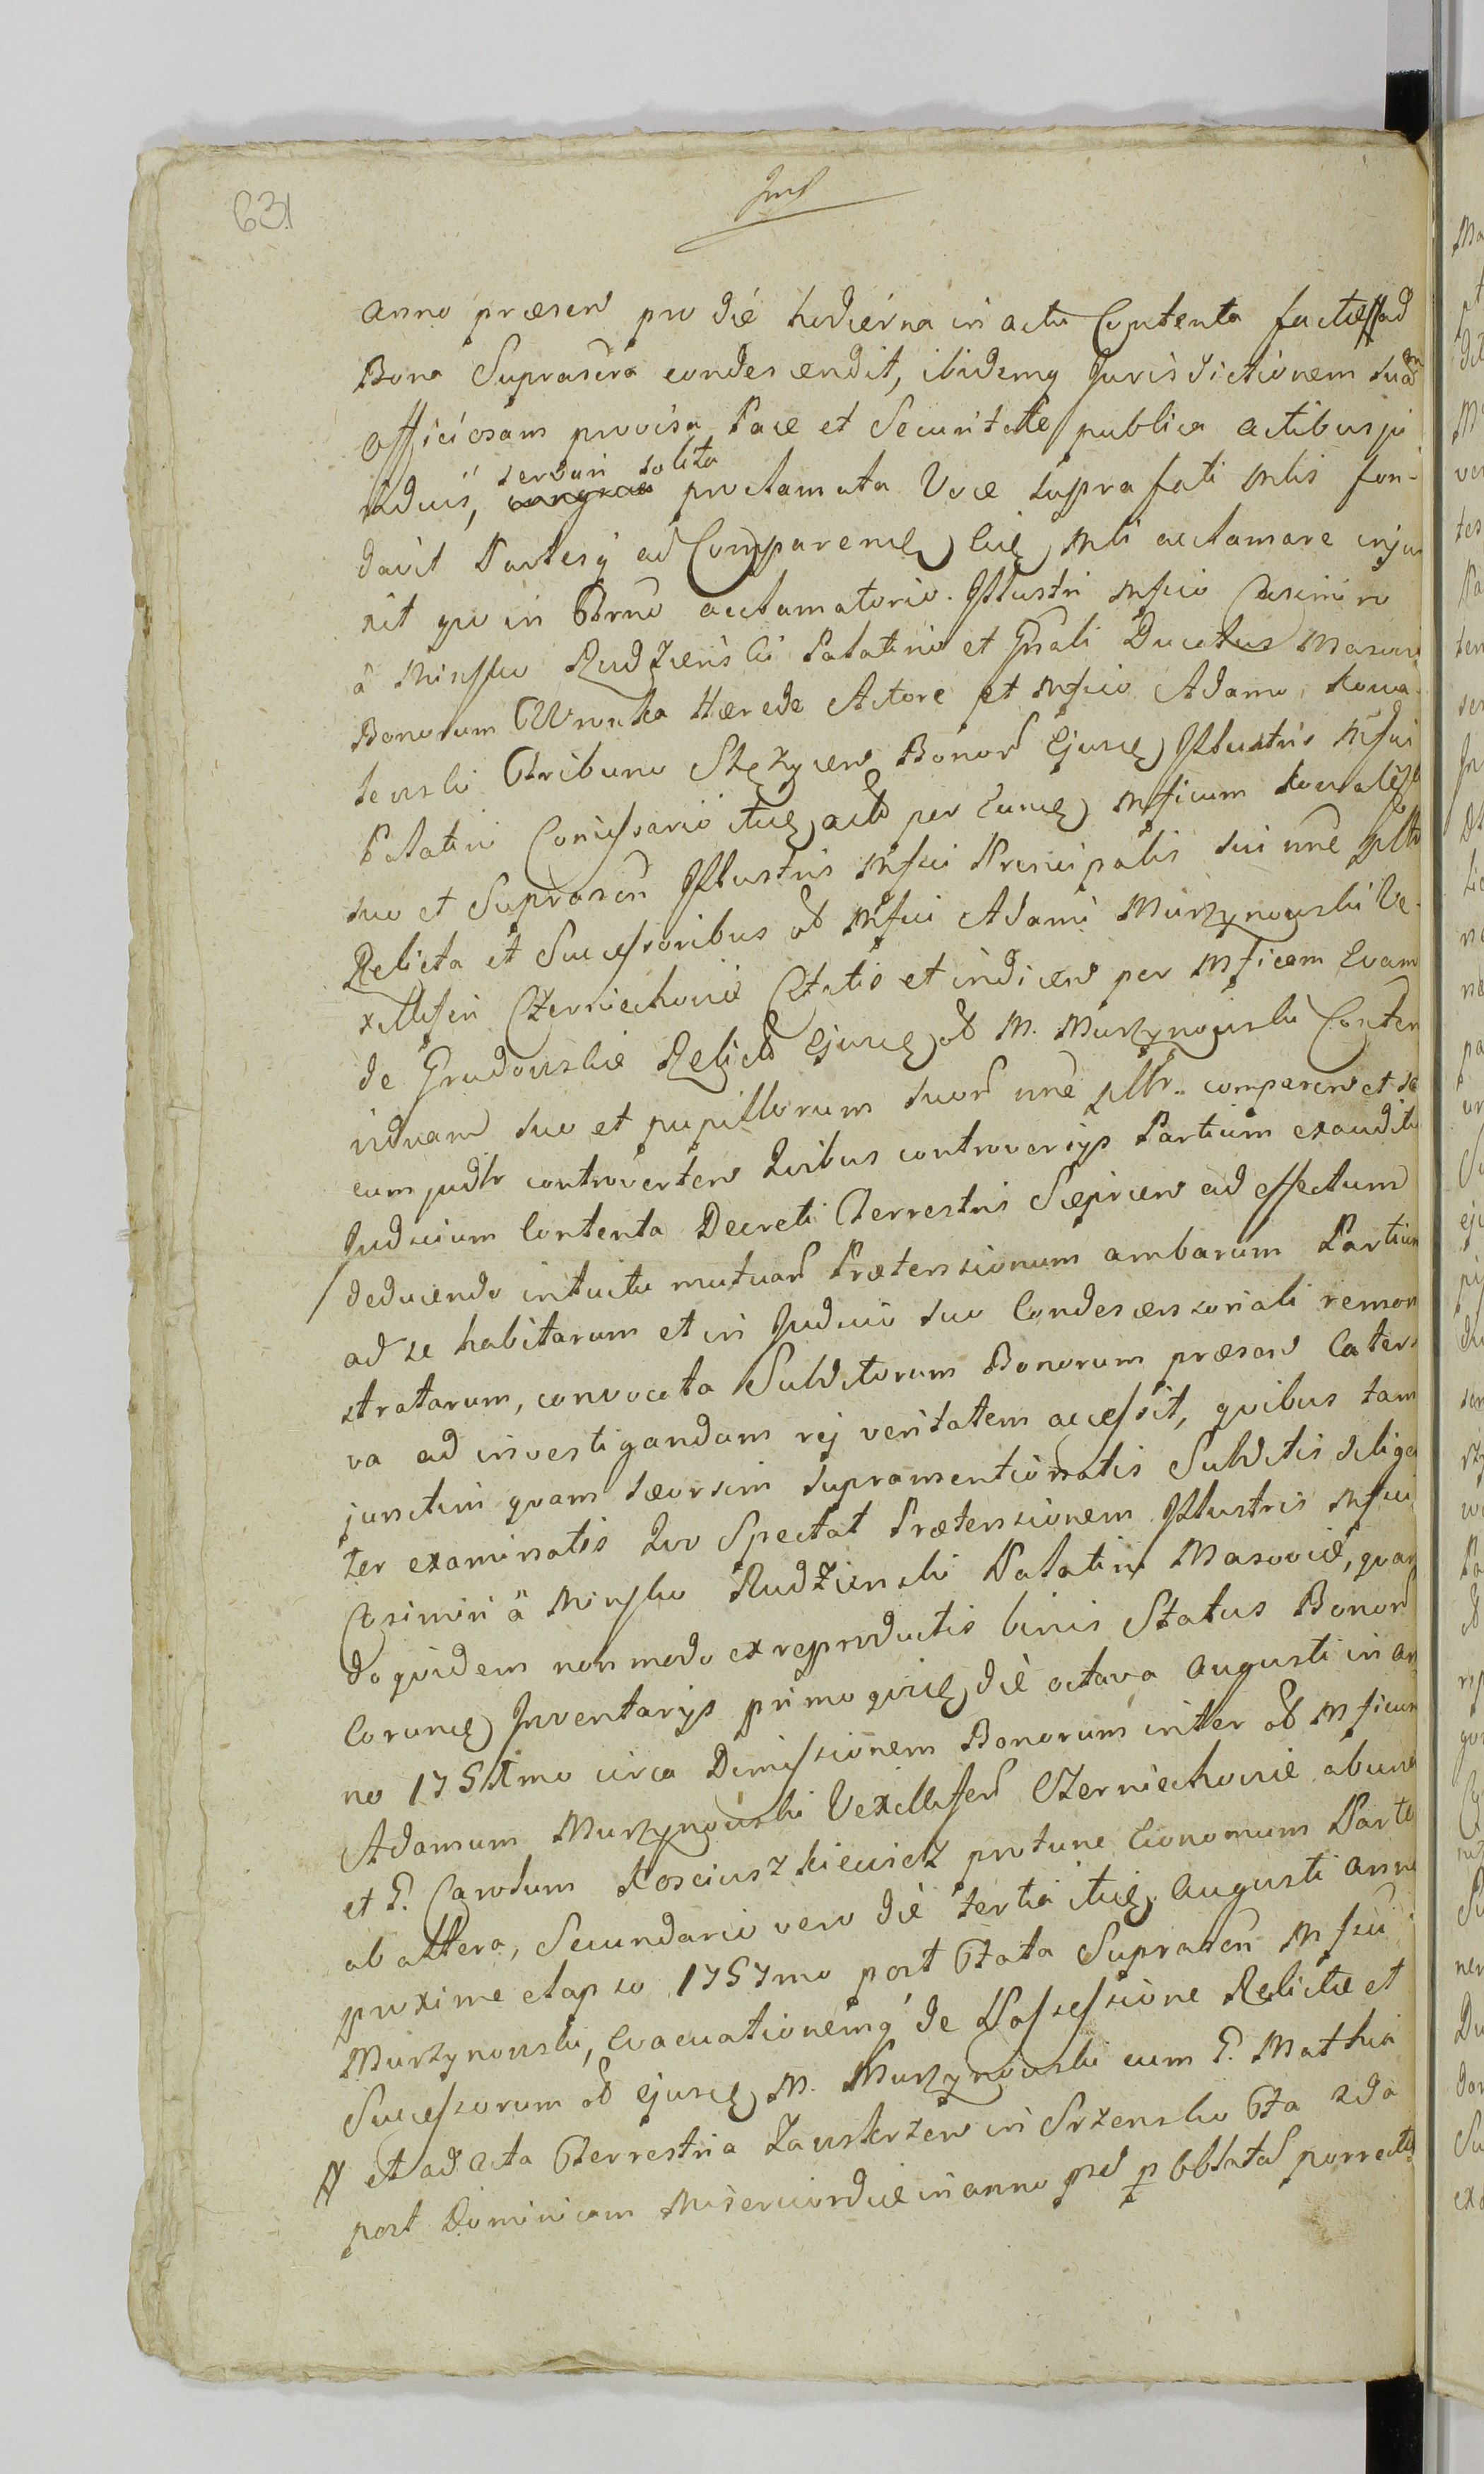 631
anno præsen pro die hodierna in actu Contenta factæ ad
Bona Suprascra condescendit, ibidemq Jurisdictionem suam
officiosam provisa Pace et Securitate publica actibus ju
servari solita
diciis, proclamata Voce suprafati Mlis fun-
davit Partesq ad Comparend Mli acclamare injun
xit quo in Trno acclamatorio. Illustri Mfico Casimiro
à Minsko Rudzienski Palatino et Gnali Ducatus Masovi
Bonorum Wronka Hærede Actore et Mfico Adamo Kowa-
lewski Tribuno Stęzycen Bonor Ejusd Illustris Mfici
Palatini Comissario per Eund Mficum Kowalew
suo et Suprascri Illustris Mfici Principalis sui nne
Relicta et Successoribus ol Mfici Adami Murzynowski Ve-
xilliferi Czerniechoviæ Citatis et indicen per Mficam Evam
de Grudowskie Relict Ejusd ol M. Murzynowski Conter
induam suo et pupillorum suor nne comparen et se
cum judlr controverten Quibus controversys Partium exauditis
Judicium Contenta Decreti Terrestris Sæpicen ad effectum
deducendo intuitu mutuar Prætensionum ambarum Partium
ad se habitarum et in Judicio suo Condescensoriali remon
stratarum, convocata Subditorum Bonorum præsen Cater
va ad investigandam rej veritatem accessit, quibus tam
junctim quam seorsim supramentionatis Subditis dilige
ter examinatis Quo Spectat Prætensionem Illustris Mfici
Casimiri à Minsko Rudzienski Palatini Masoviæ, quan
do quidem non modo ex reproductis binis Status Bonor
Eorund Inventarys primo die octava Augusti in an
no 1751mo circa Dimissionem Bonorum inter ol Mficum
Adamum Murzynowski Vexillifer Czerniechoviæ ab una
et G. Carolum Kosciuszkiewicz protunc Economum Parte
ab altera, Secundario vero die tertia Augusti anno
proxime elapso 1757mo post Fata Suprascri Mfici
Murzynowski, Evacuationemq de Possessione Relictæ et
Successorum ol Ejusd M. Murzynowski cum G. Mathia
et ad Acta Terrestria Zawskrzen in Srzensko Fta 2da
post Dominicam Misericordiæ in anno Oblatam porrectis